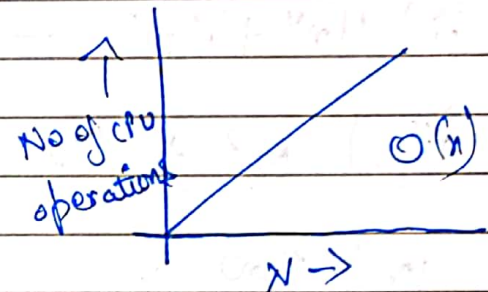 No of CPU
operations
O(n)
N →